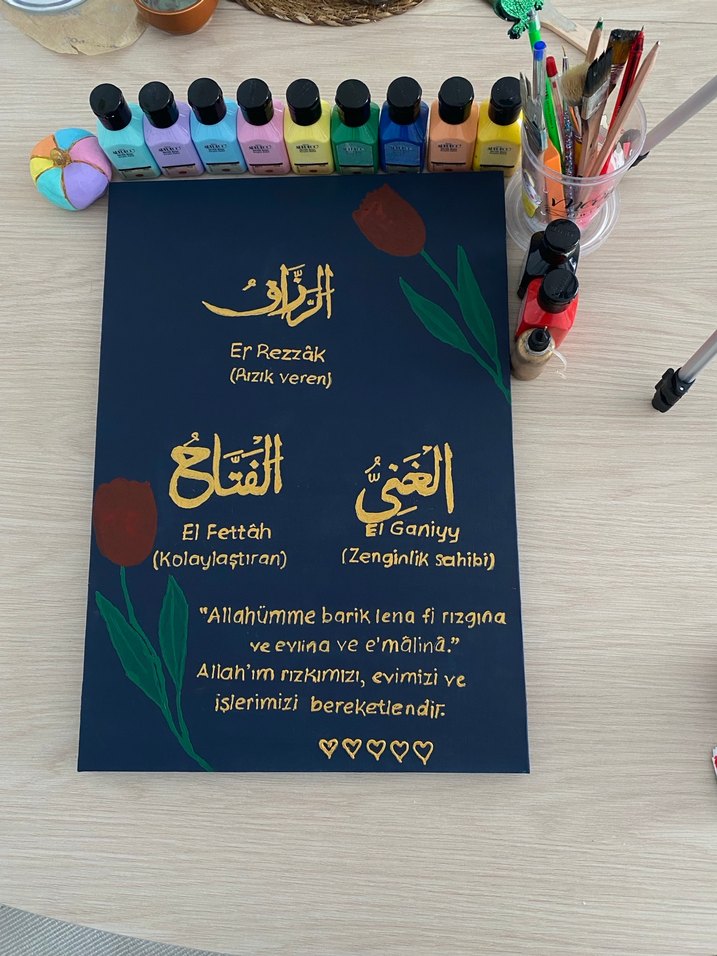 الرَّزَّاقُ
Er Rezzâk
(Rızık veren)
الْفَتَّاحُ
El Fettâh
(Kolaylaştıran)
الْغَنِيُّ
El Ganiyy
(Zenginlik sahibi)
"Allahümme barik lena fi rızgına
ve evlina ve e'mâlinâ."
Allah'ım rızkımızı, evimizi ve
işlerimizi bereketlendir.